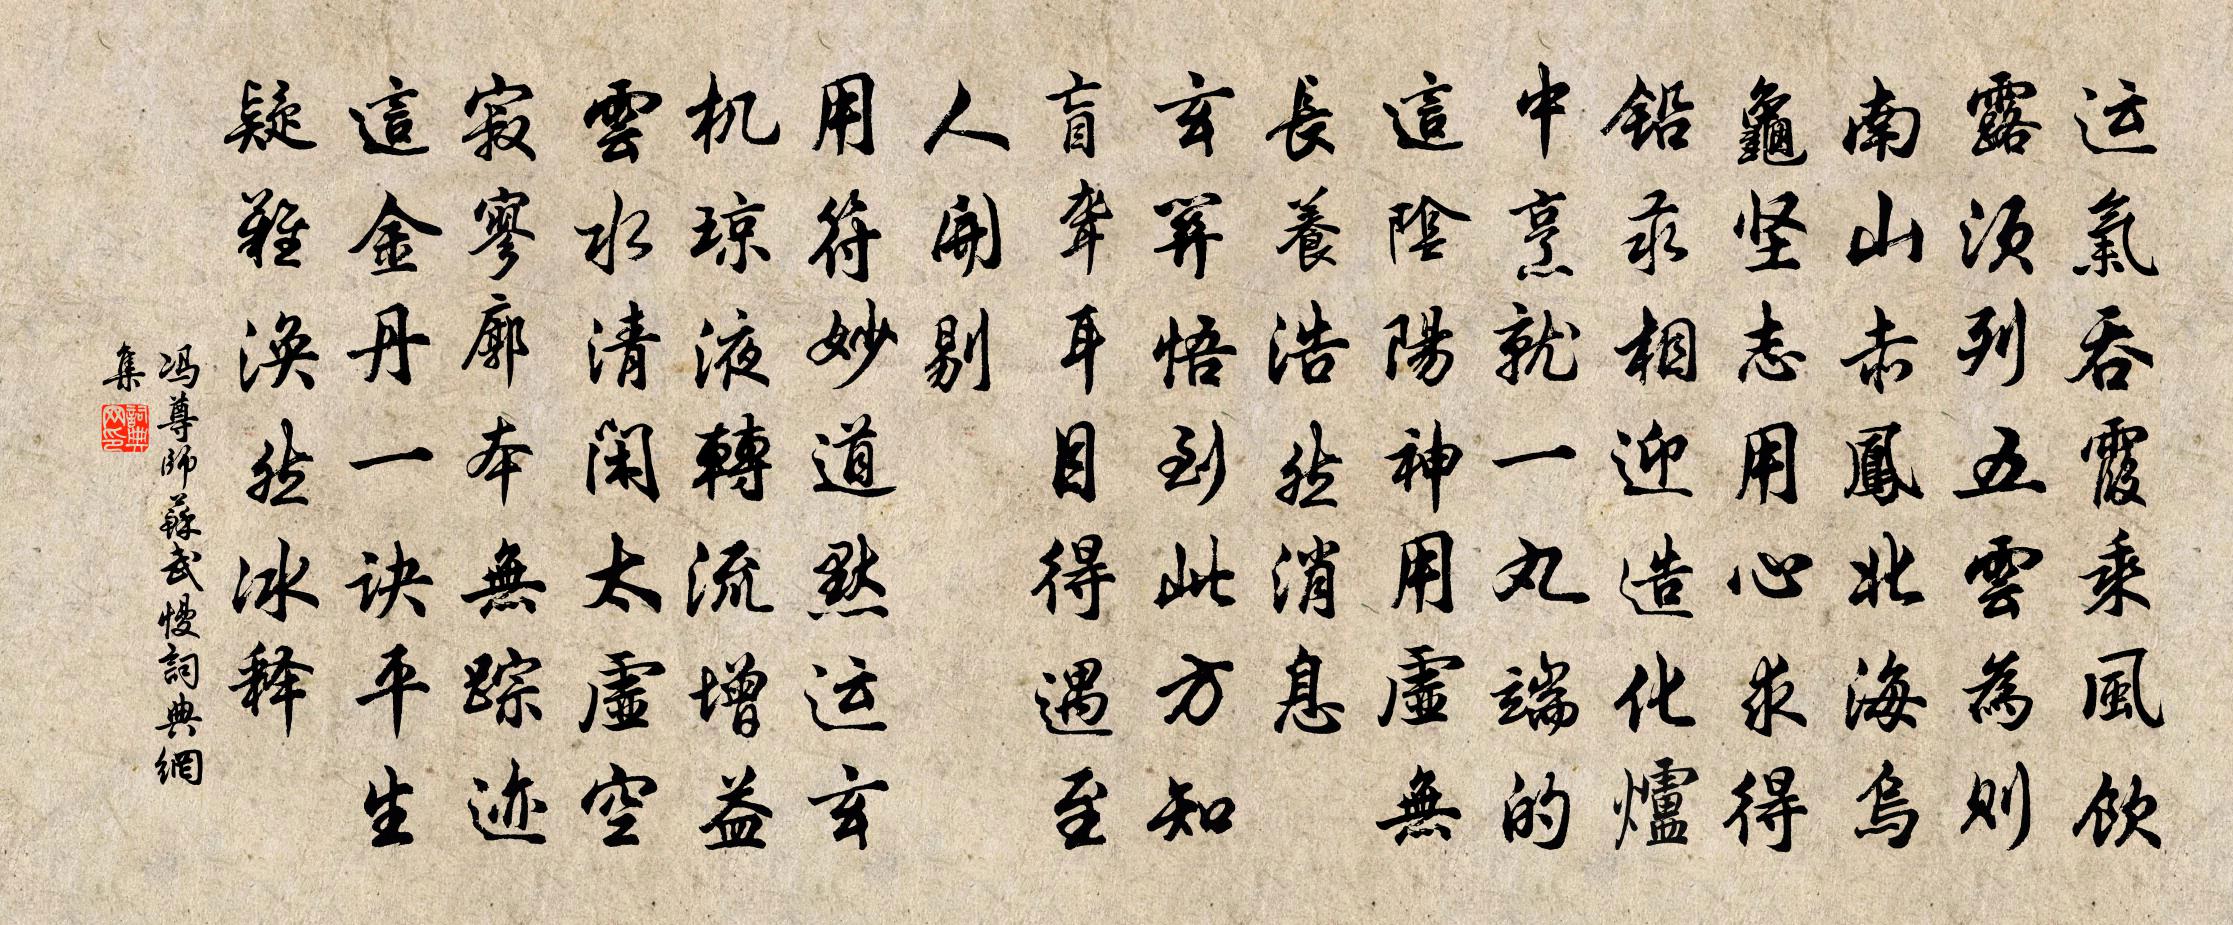 运氣吞霞乘風飲
露須列五雲為則
南山赤鳳北海烏
龜坚志用心求得
铅汞相迎造化爐
中烹就一丸端的
這陰陽神用虛無
長養浩然消息
玄關悟到此方知
盲聾耳目得遇至
人開剔
用符妙道默运玄
机琼液轉流增益
雲水清闲太虛空
寂寥廓本無踪迹
這金丹一訣平生
疑難渙然冰释
冯尊師蘇武慢詞典網
集
詞典网印